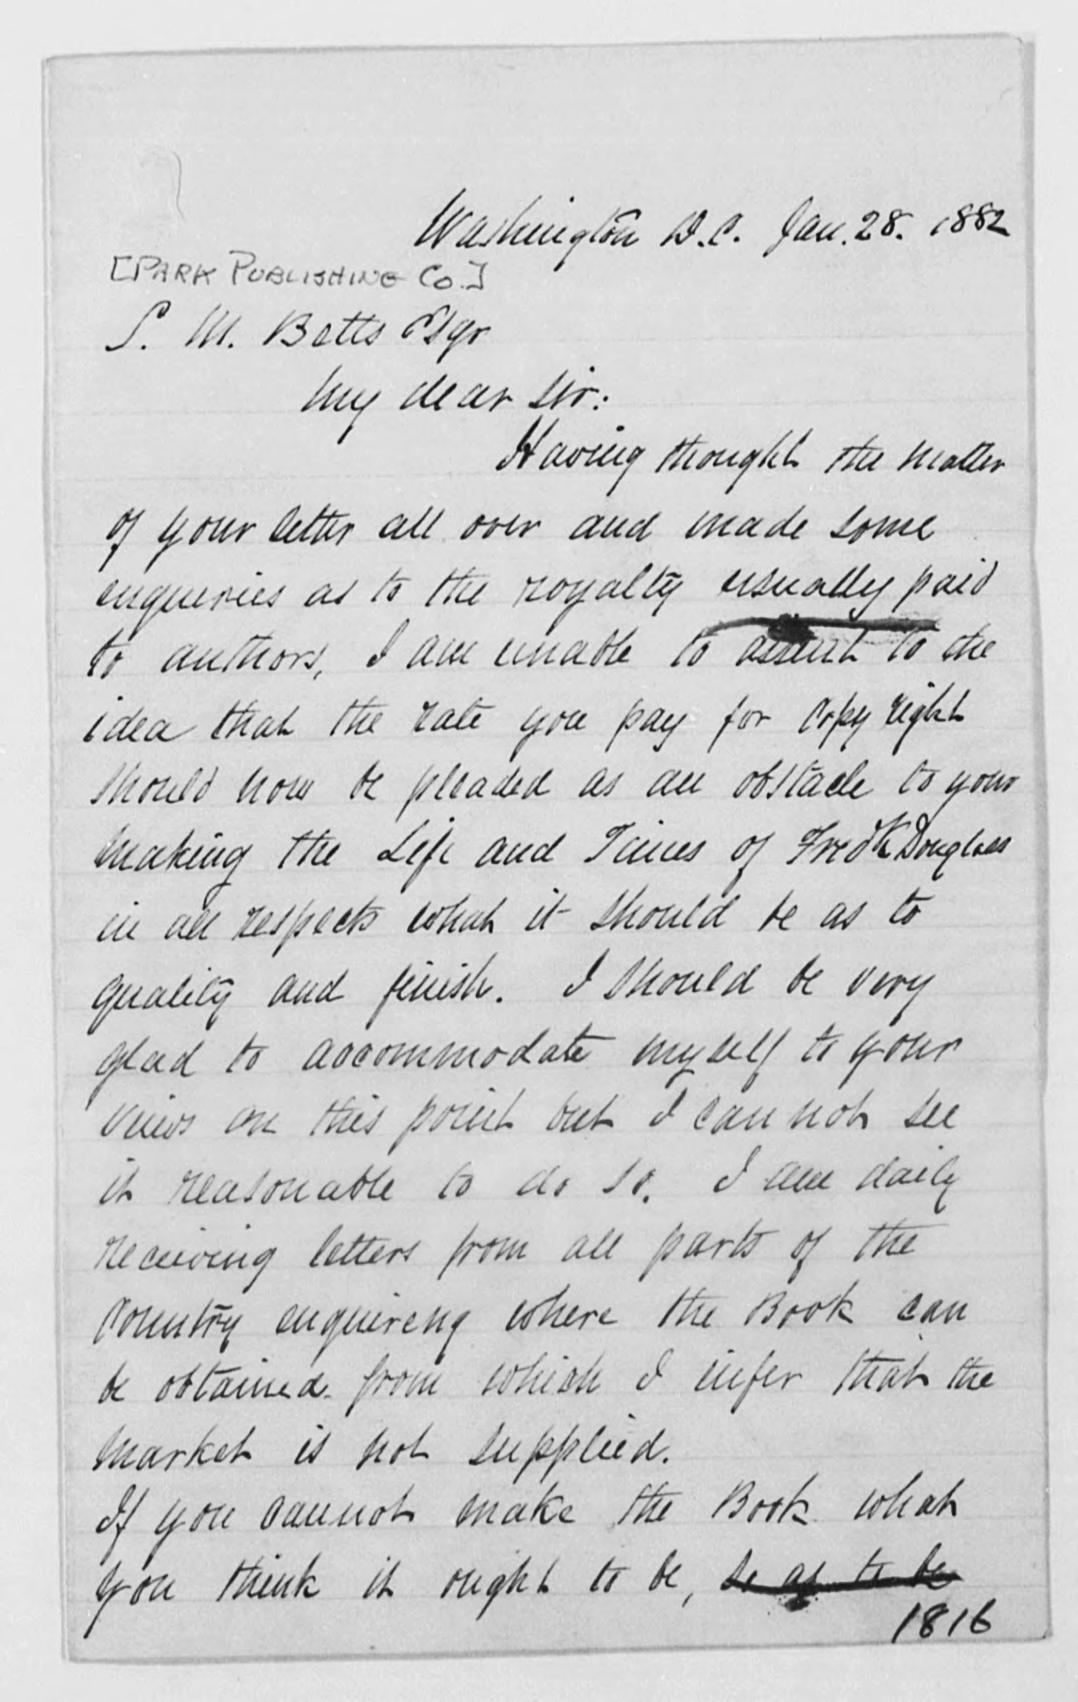 Washington D.C. Jan. 28. 1882
[PARK PUBLISHING CO.]
S. M. Betts Esqr
My dear Sir:
Having thought the matter
of your letter all over and made some
enqueries as to the royalty usually paid
to authors, I am unable to assent to the
idea that the rate you pay for copy right
should now be pleaded as an obstacle to your
making the Life and Times of Fredk Douglass
in all respects what it should be as to
quality and finish. I should be very
glad to accommodate myself to your
views on this point but I can not see
it reasonable to do so. I am daily
receiving letters from all parts of the
country enquireng where the Book can
be obtained from which I infer that the
market is not supplied.
If you cannot make the Book what
you think it ought to be, so as to be
1816